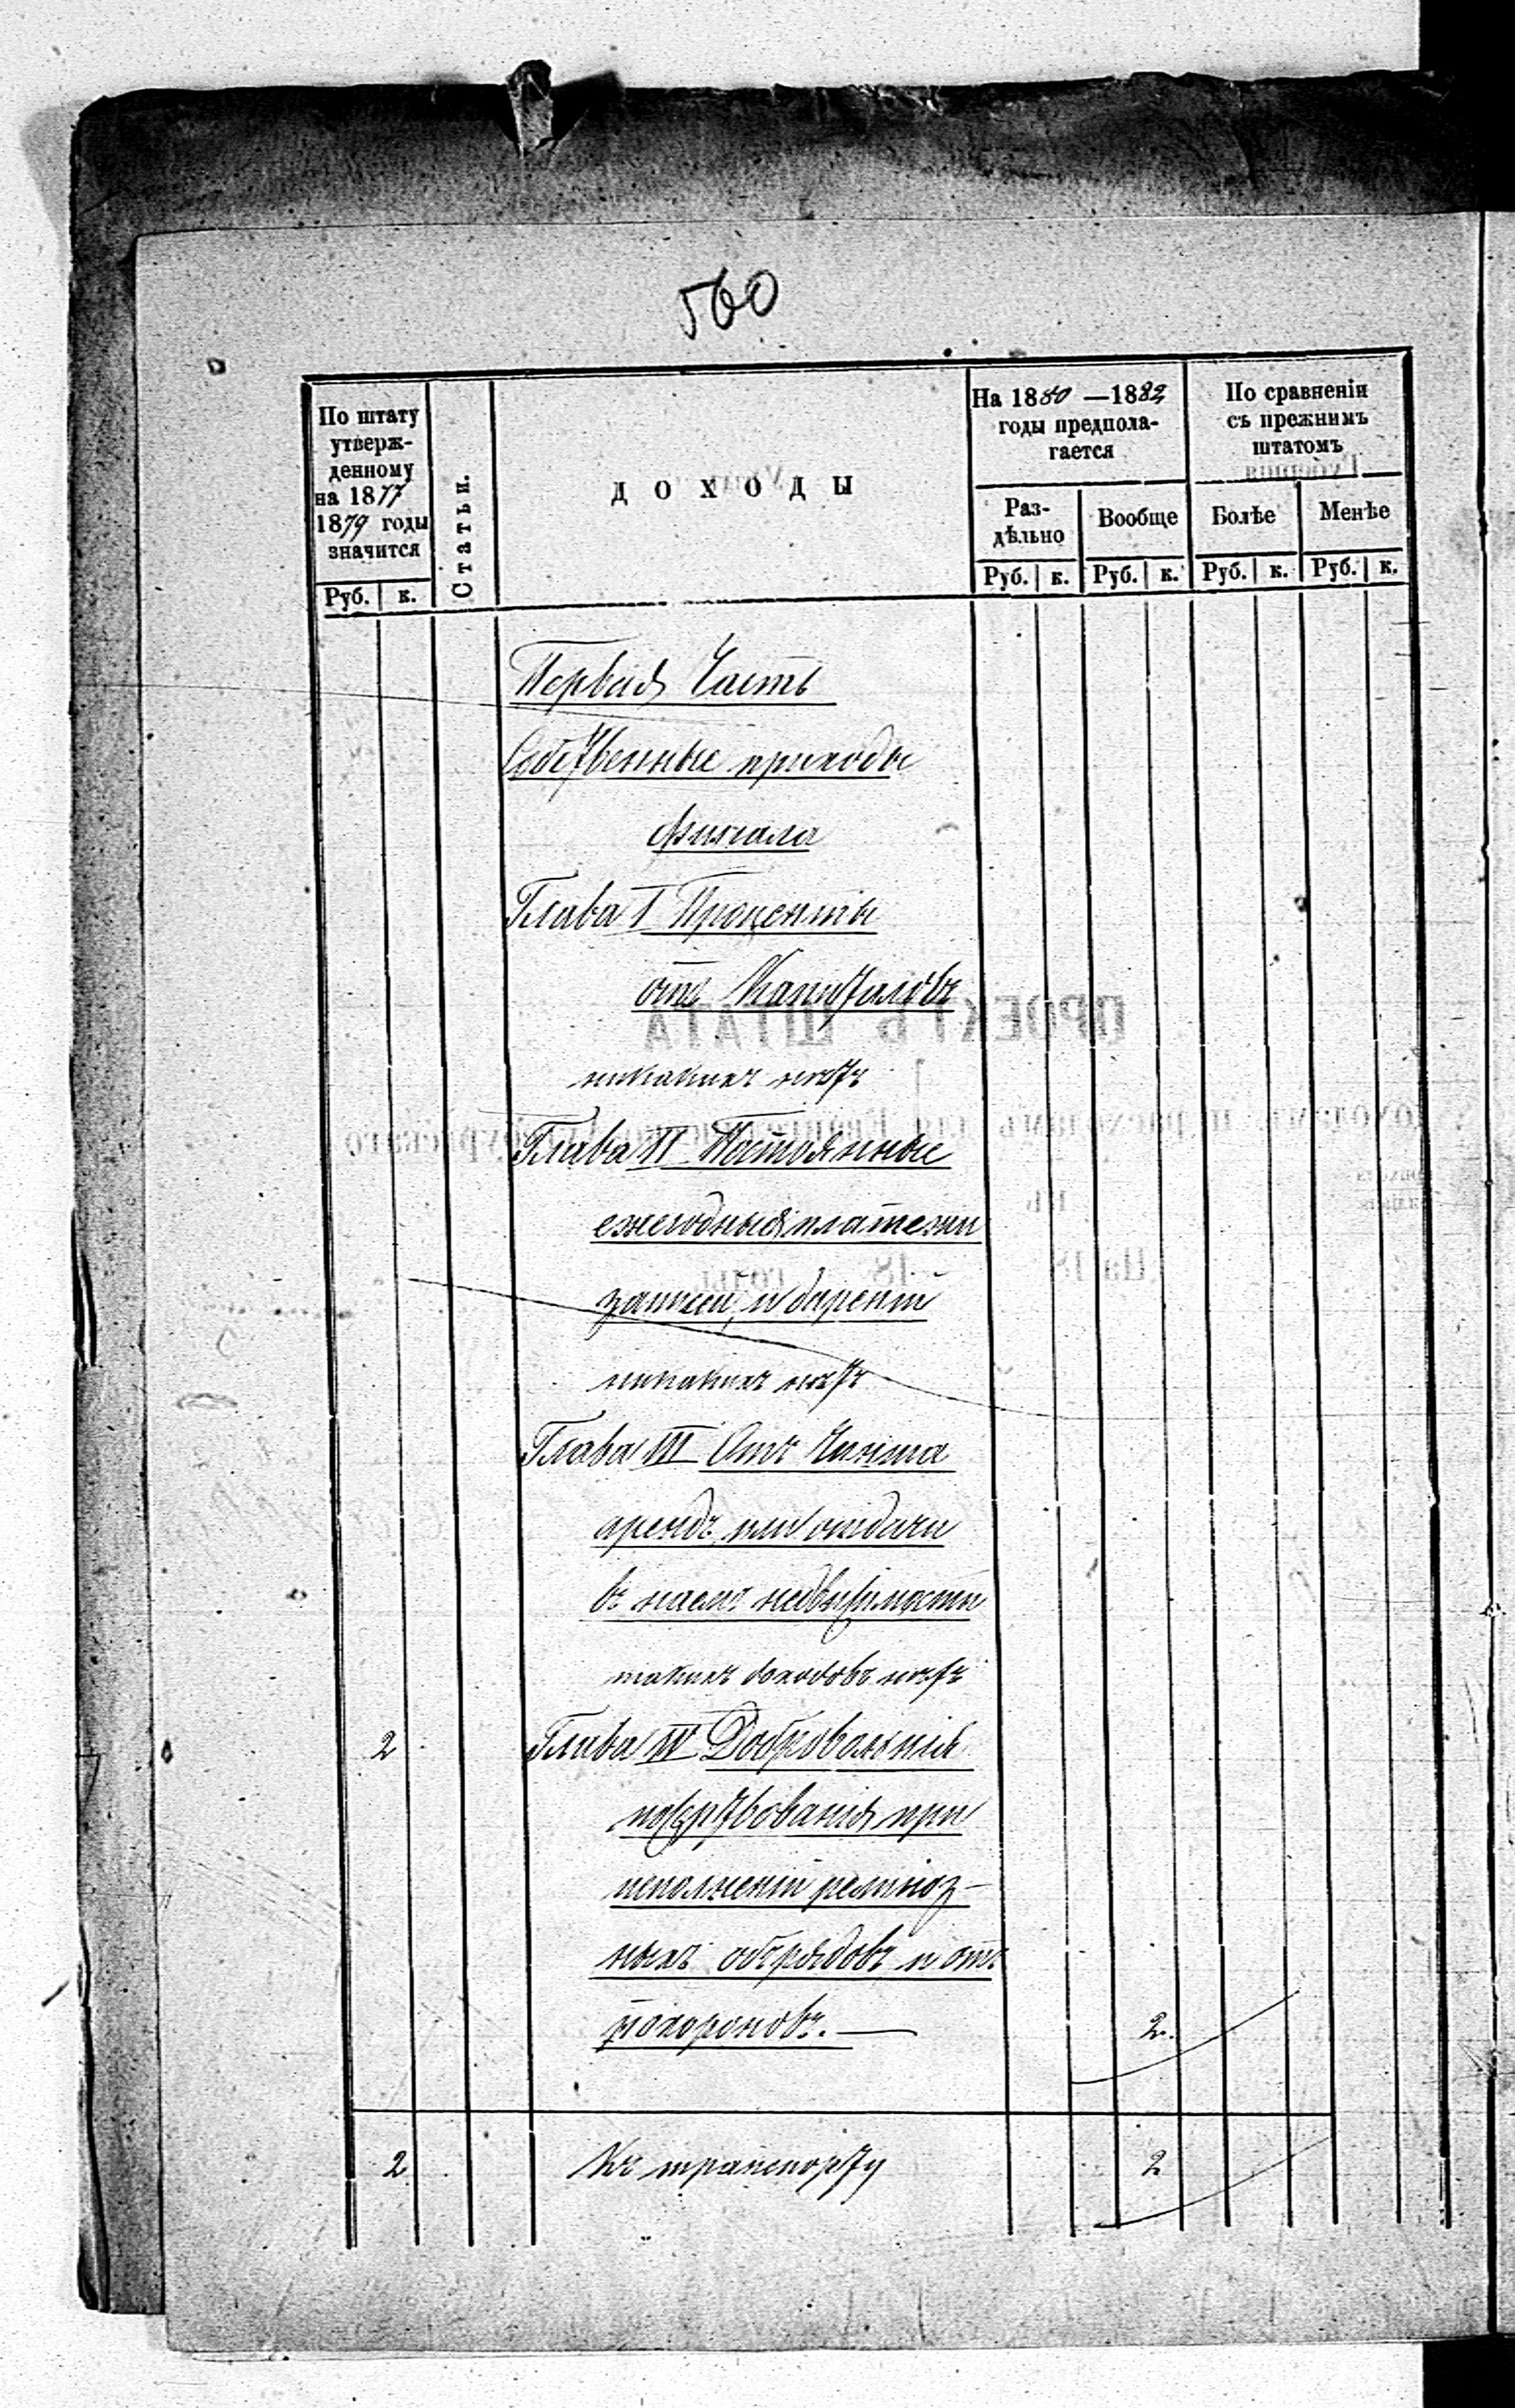 560
По штату
утверж-
денному
на 1877
1879 годы
значится
Руб. к.
Статьи.
ДОХОДЫ
На 1880 —1882
годы предпола-
гается
Раз-
дѣльно
Вообще
Руб. к. Руб. к.
По сравненіи
съ прежнимъ
штатомъ
Болѣе Менѣе
Руб. к. Руб. к.
Первая Часть
Собственные приходы
филiала
Глава I Проценты
отъ Капиталовъ
никакихъ нѣтъ
Глава II Постоянные
ежегодныя платежи
записей, и дареній
никакихъ нѣтъ
Глава III Отъ Чинша
арендъ, или отдачи
въ наемъ недвижимости
такихъ доходовъ нѣтъ
2 Глава IV Добровольнiя
пожертвованiя при
исполненiи религiоз-
ныхъ обрядовъ и отъ
похороновъ. — 2.
2 Къ транспорту 2